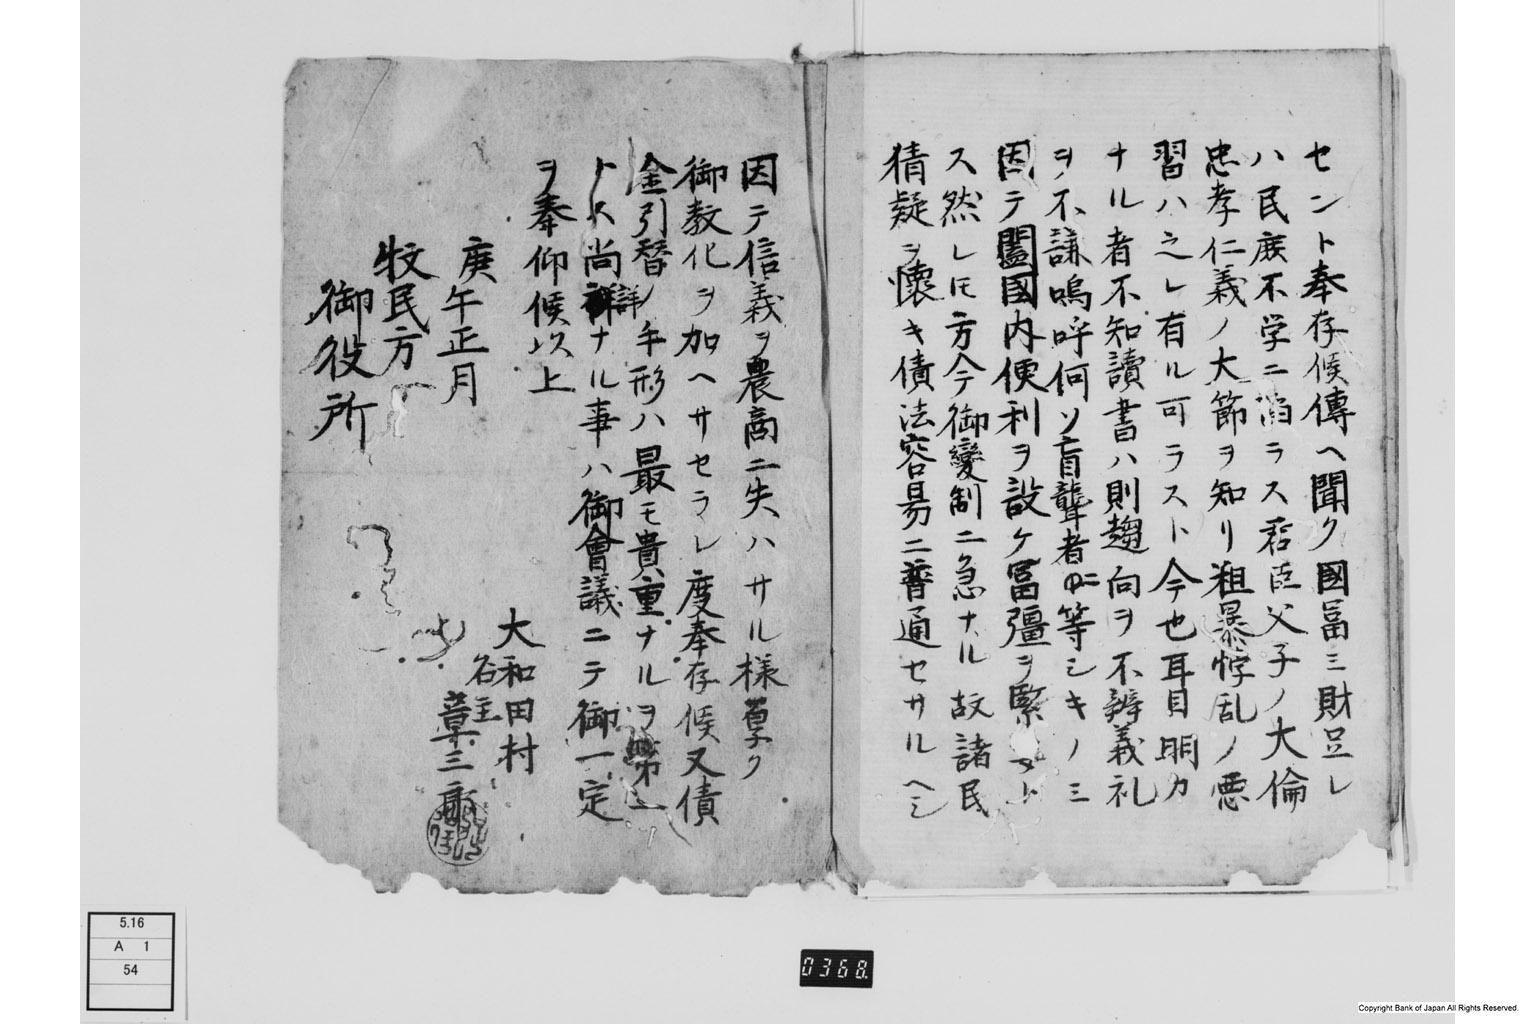 セント奉存候傳ヘ聞ク國冨ミ財足レ
ハ民庶不学ニ陥ラス君臣父子ノ大倫
忠孝仁義ノ大節ヲ知リ粗暴悖乱ノ悪
習ハ之レ有ル可ラスト今也耳目明カ
ナル者不知讀書ハ則趨向ヲ不辨義礼
ヲ不謙嗚呼何ソ盲聾者ニ等シキノミ
因テ闔國内便利ヲ設ケ冨彊ヲ緊
ス然レ𪜈方今御變制ニ急ナル故諸民
猜疑ヲ懐キ債法容易ニ普通セサルヘシ
因テ信義ヲ農商ニ失ハサル様厚ク
御教化ヲ加ヘサセラレ度奉存候又債
金引替ノ手形ハ最モ貴重ナルヲ第一
トス尚詳ナル事ハ御會議ニテ御一定
ヲ奉仰候以上
庚午正月
大和田村
名主
章三郎
牧民方
御役所
5.16
A 1
54
0368.
Copyright Bank of Japan All Rights Reserved.